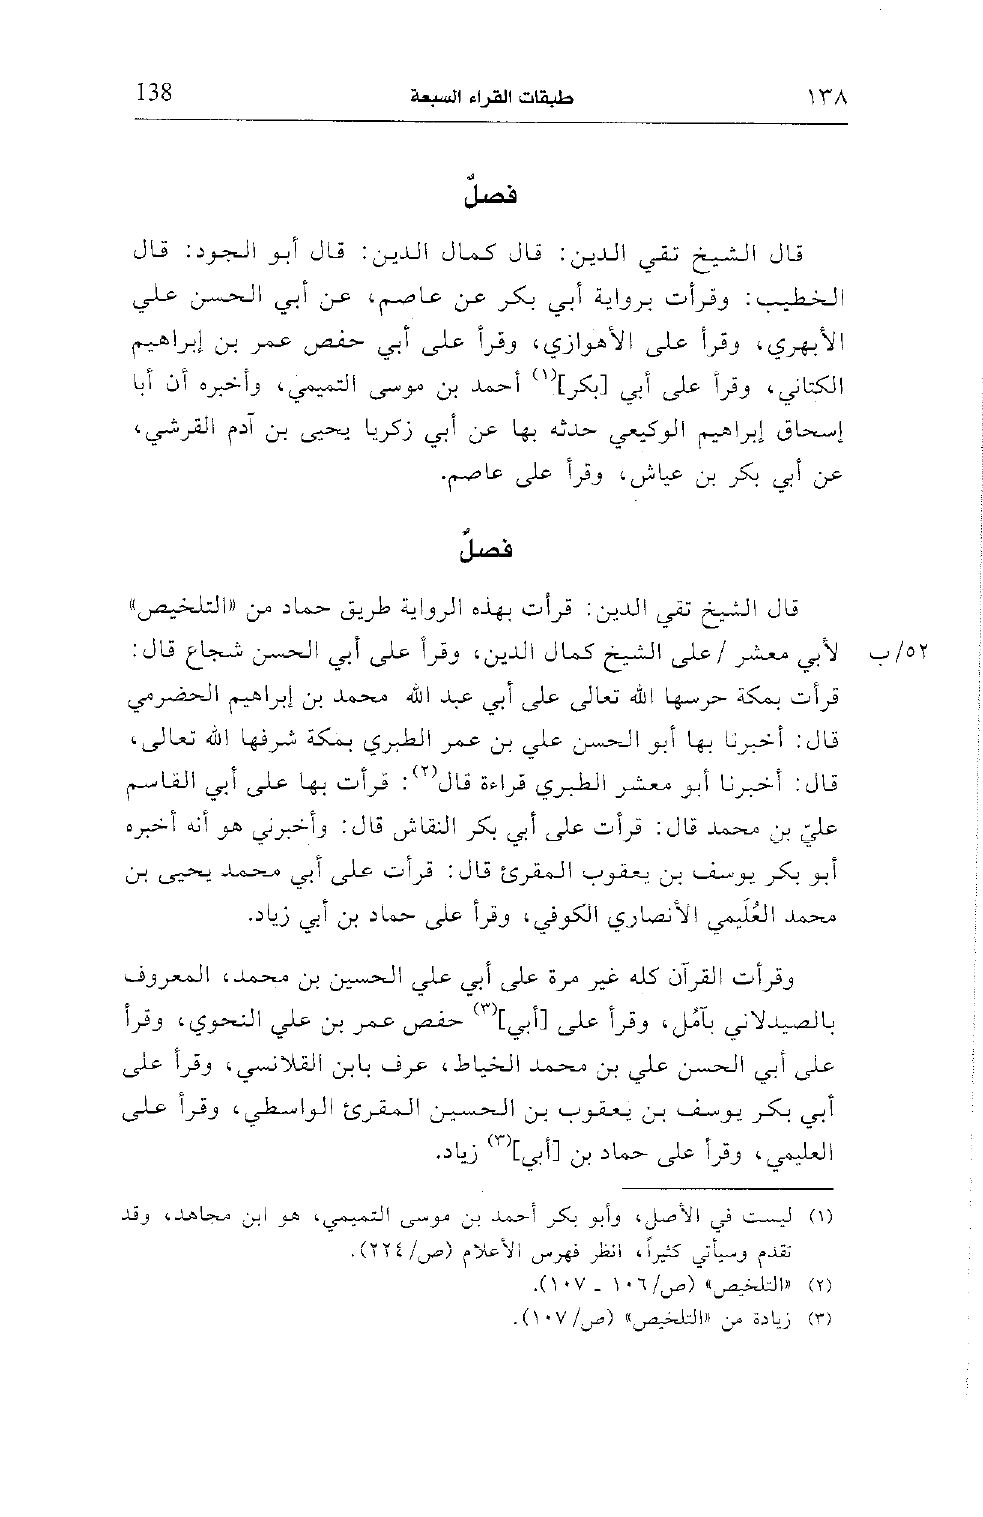 ١٣٨ طبقات القراء السبعة 138
فصلٌ
قال الشيخ تقي الدين: قال كمال الدين: قال أبو الجود: قال
الخطيب: وقرأت برواية أبي بكر عن عاصم، عن أبي الحسن علي
الأبهري، وقرأ على الأهوازي، وقرأ على أبي حفص عمر بن إبراهيم
الكتاني، وقرأ على أبي [بكر](١) أحمد بن موسى التميمي، وأخبره أن أبا
إسحاق إبراهيم الوكيعي حدثه بها عن أبي زكريا يحيى بن آدم القرشي،
عن أبي بكر بن عياش، وقرأ على عاصم.
فصلٌ
قال الشيخ تقي الدين: قرأت بهذه الرواية طريق حماد من «التلخيص»
٥٢/ب لأبي معشر / على الشيخ كمال الدين، وقرأ على أبي الحسن شجاع قال:
قرأت بمكة حرسها الله تعالى على أبي عبد الله محمد بن إبراهيم الحضرمي
قال: أخبرنا بها أبو الحسن علي بن عمر الطبري بمكة شرفها الله تعالى،
قال: أخبرنا أبو معشر الطبري قراءة قال(٢): قرأت بها على أبي القاسم
عليّ بن محمد قال: قرأت على أبي بكر النقاش قال: وأخبرني هو أنه أخبره
أبو بكر يوسف بن يعقوب المقرئ قال: قرأت على أبي محمد يحيى بن
محمد العُلَيمي الأنصاري الكوفي، وقرأ على حماد بن أبي زياد.
وقرأت القرآن كله غير مرة على أبي علي الحسين بن محمد، المعروف
بالصيدلاني بآمُل، وقرأ على [أبي](٣) حفص عمر بن علي النحوي، وقرأ
على أبي الحسن علي بن محمد الخياط، عرف بابن القلانسي، وقرأ على
أبي بكر يوسف بن يعقوب بن الحسين المقرئ الواسطي، وقرأ على
العليمي، وقرأ على حماد بن [أبي](٣) زياد.
(١) ليست في الأصل، وأبو بكر أحمد بن موسى التميمي، هو ابن مجاهد، وقد
تقدم وسيأتي كثيراً، انظر فهرس الأعلام (ص/٢٢٤).
(٢) «التلخيص» (ص/١٠٦ - ١٠٧).
(٣) زيادة من «التلخيص» (ص/١٠٧).